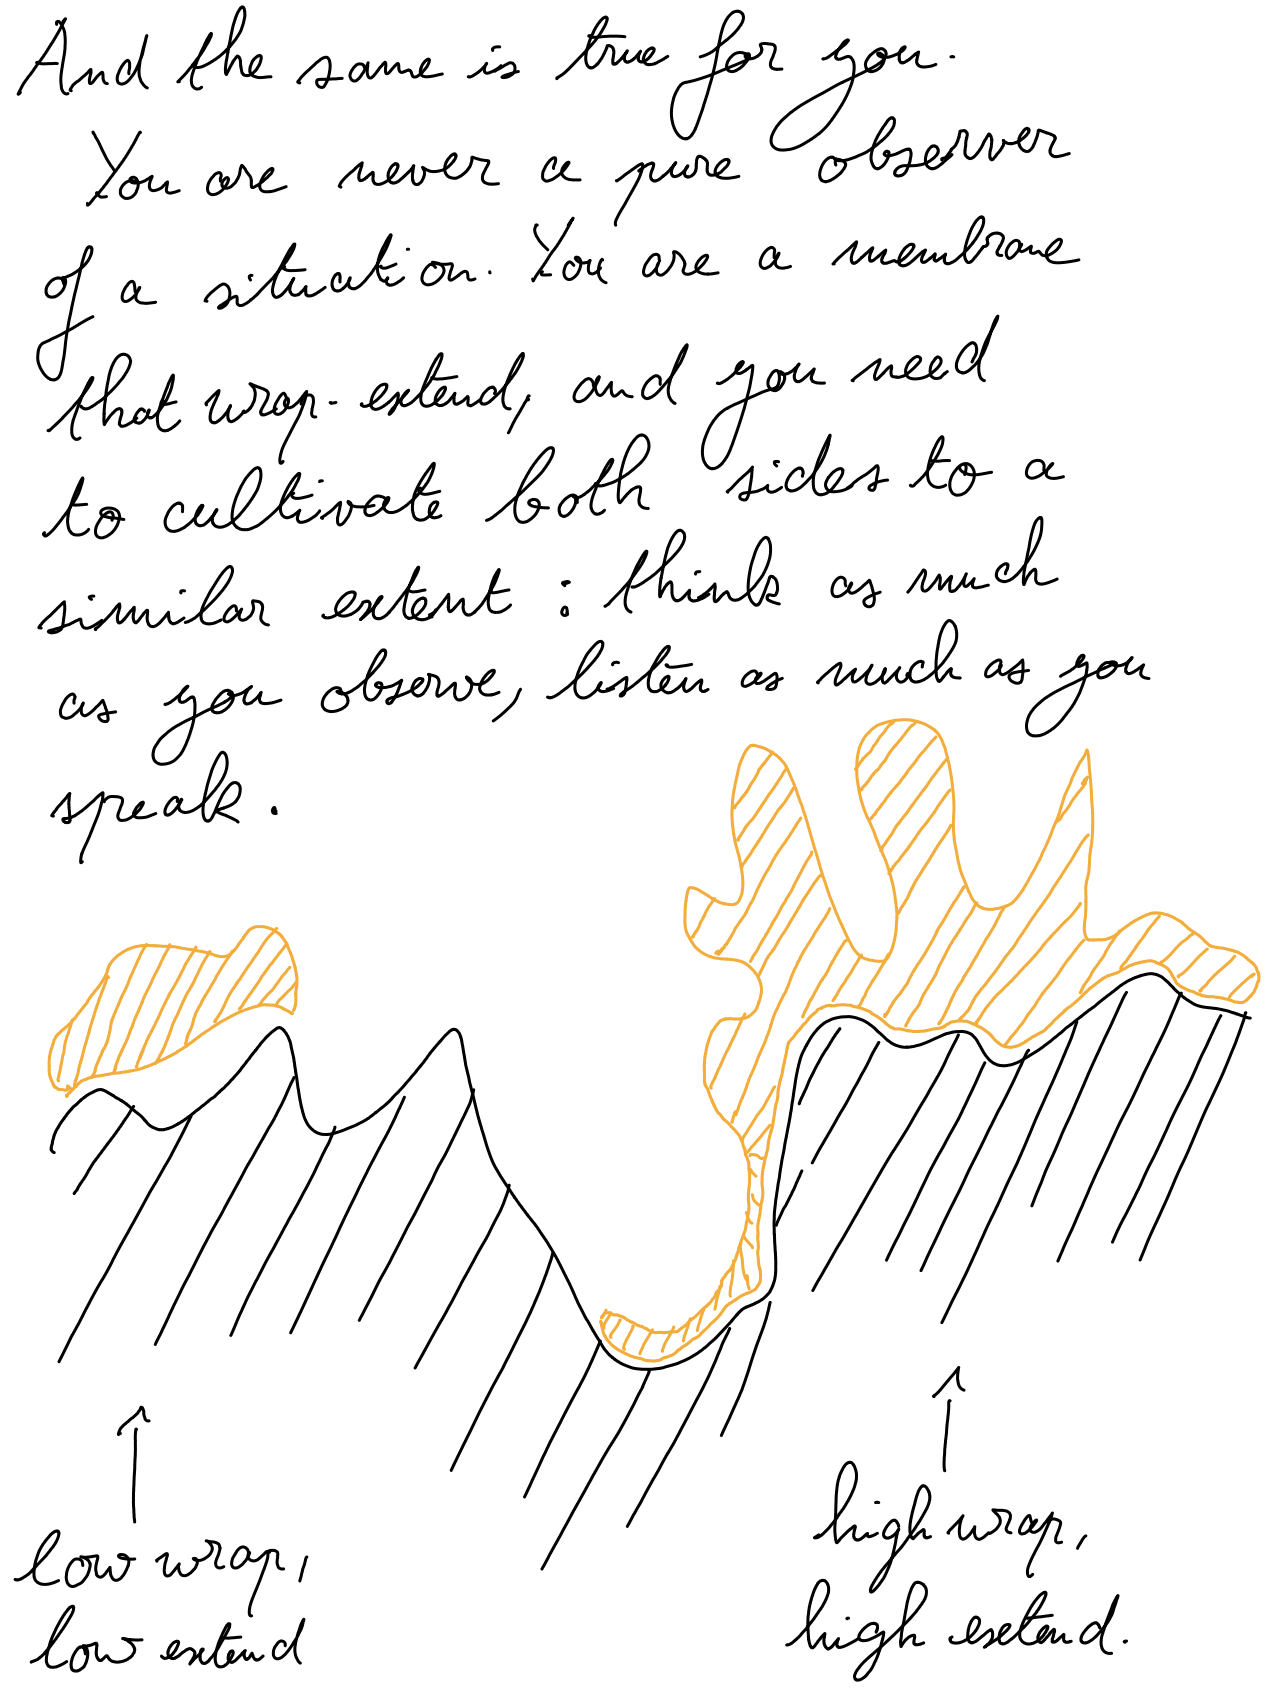 And the same is true for you.
You are never a pure observer
of a situation. You are a membrane
that wrap-extend, and you need
to cultivate both sides to a
similar extent : think as much
as you observe, listen as much as you
speak.
low wrap,
low extend
high wrap,
high extend.